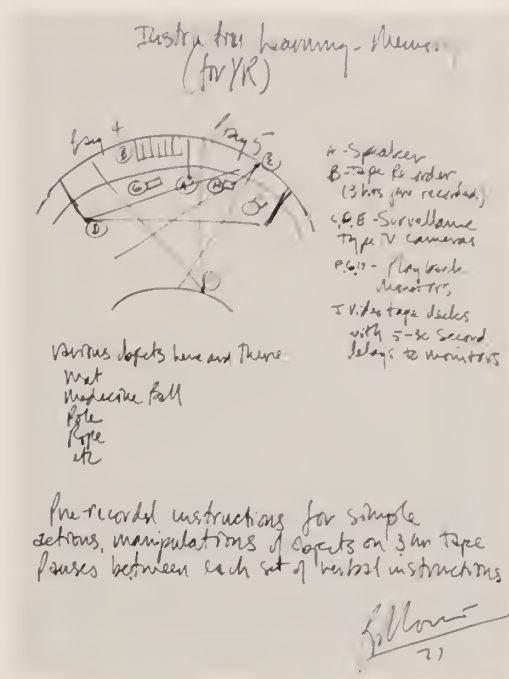 (for YR)
Bay 4
Bay 5
B
E
G
A
H
D
A - Speaker
B - Tape Re-order
(3 hrs pre recorded)
C, D, E - Survellance
type TV cameras
F, G, H - Playback
Monitors
I Video tape decks
with 5-sc second
delays to monitors
Various objets here and There
Mat
Medecine Ball
Pole
Rope
etc
Pre-recorded instructions for simple
actions, manipulations of objects on 3 hr tape
Pauses between each set of verbal instructions